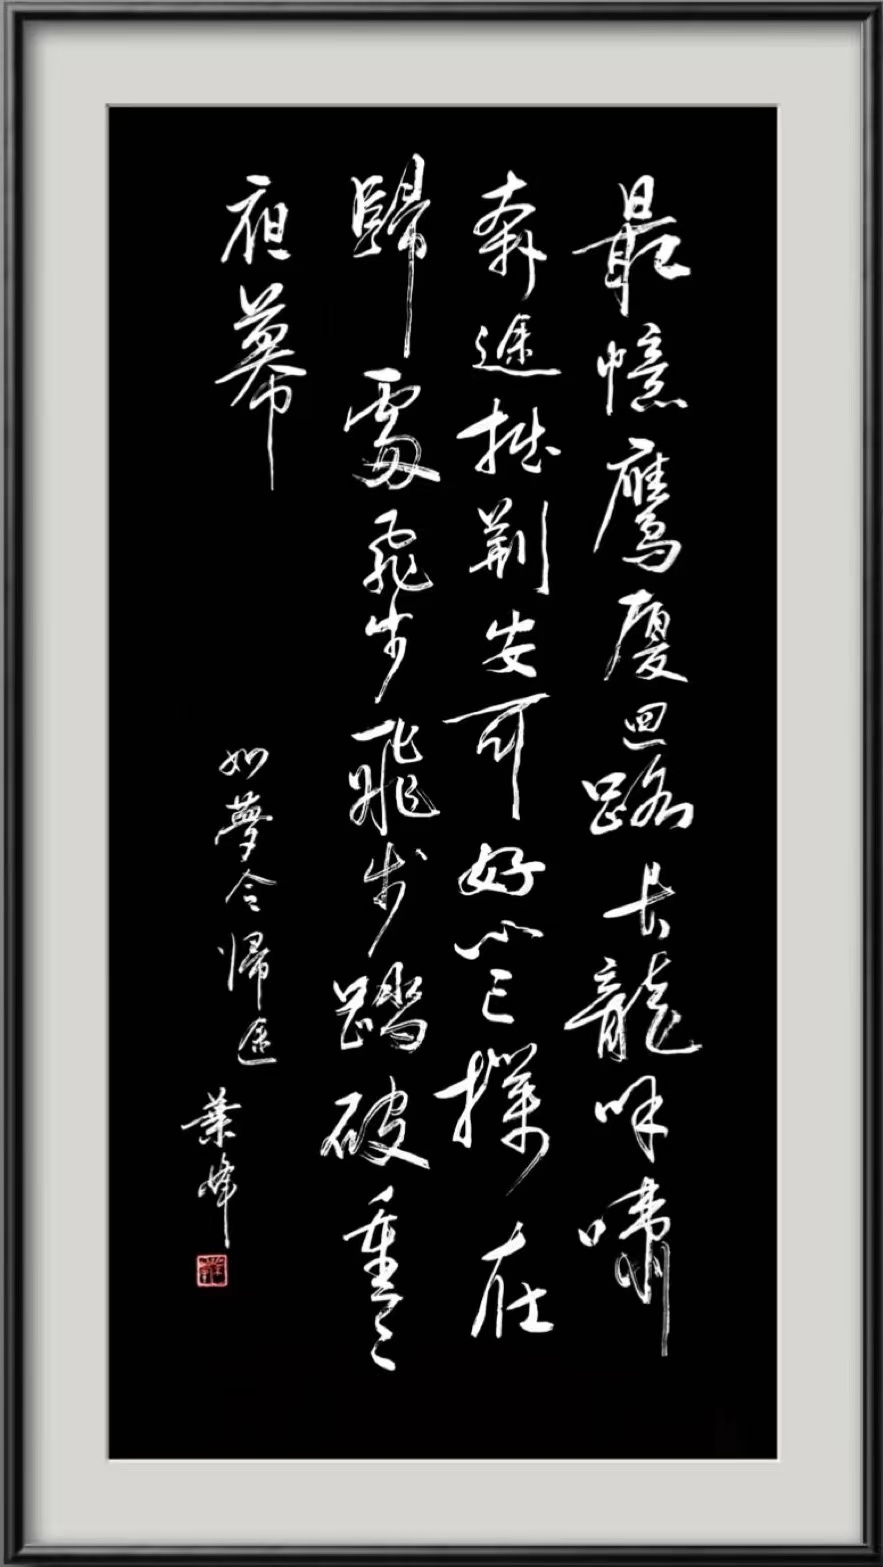 最憶鷹廈回路长龍呼嘯
奔途拙荆安可好心已撲在
歸處飛步飛步踏破重〻
夜幕
如夢令歸途
葉峰